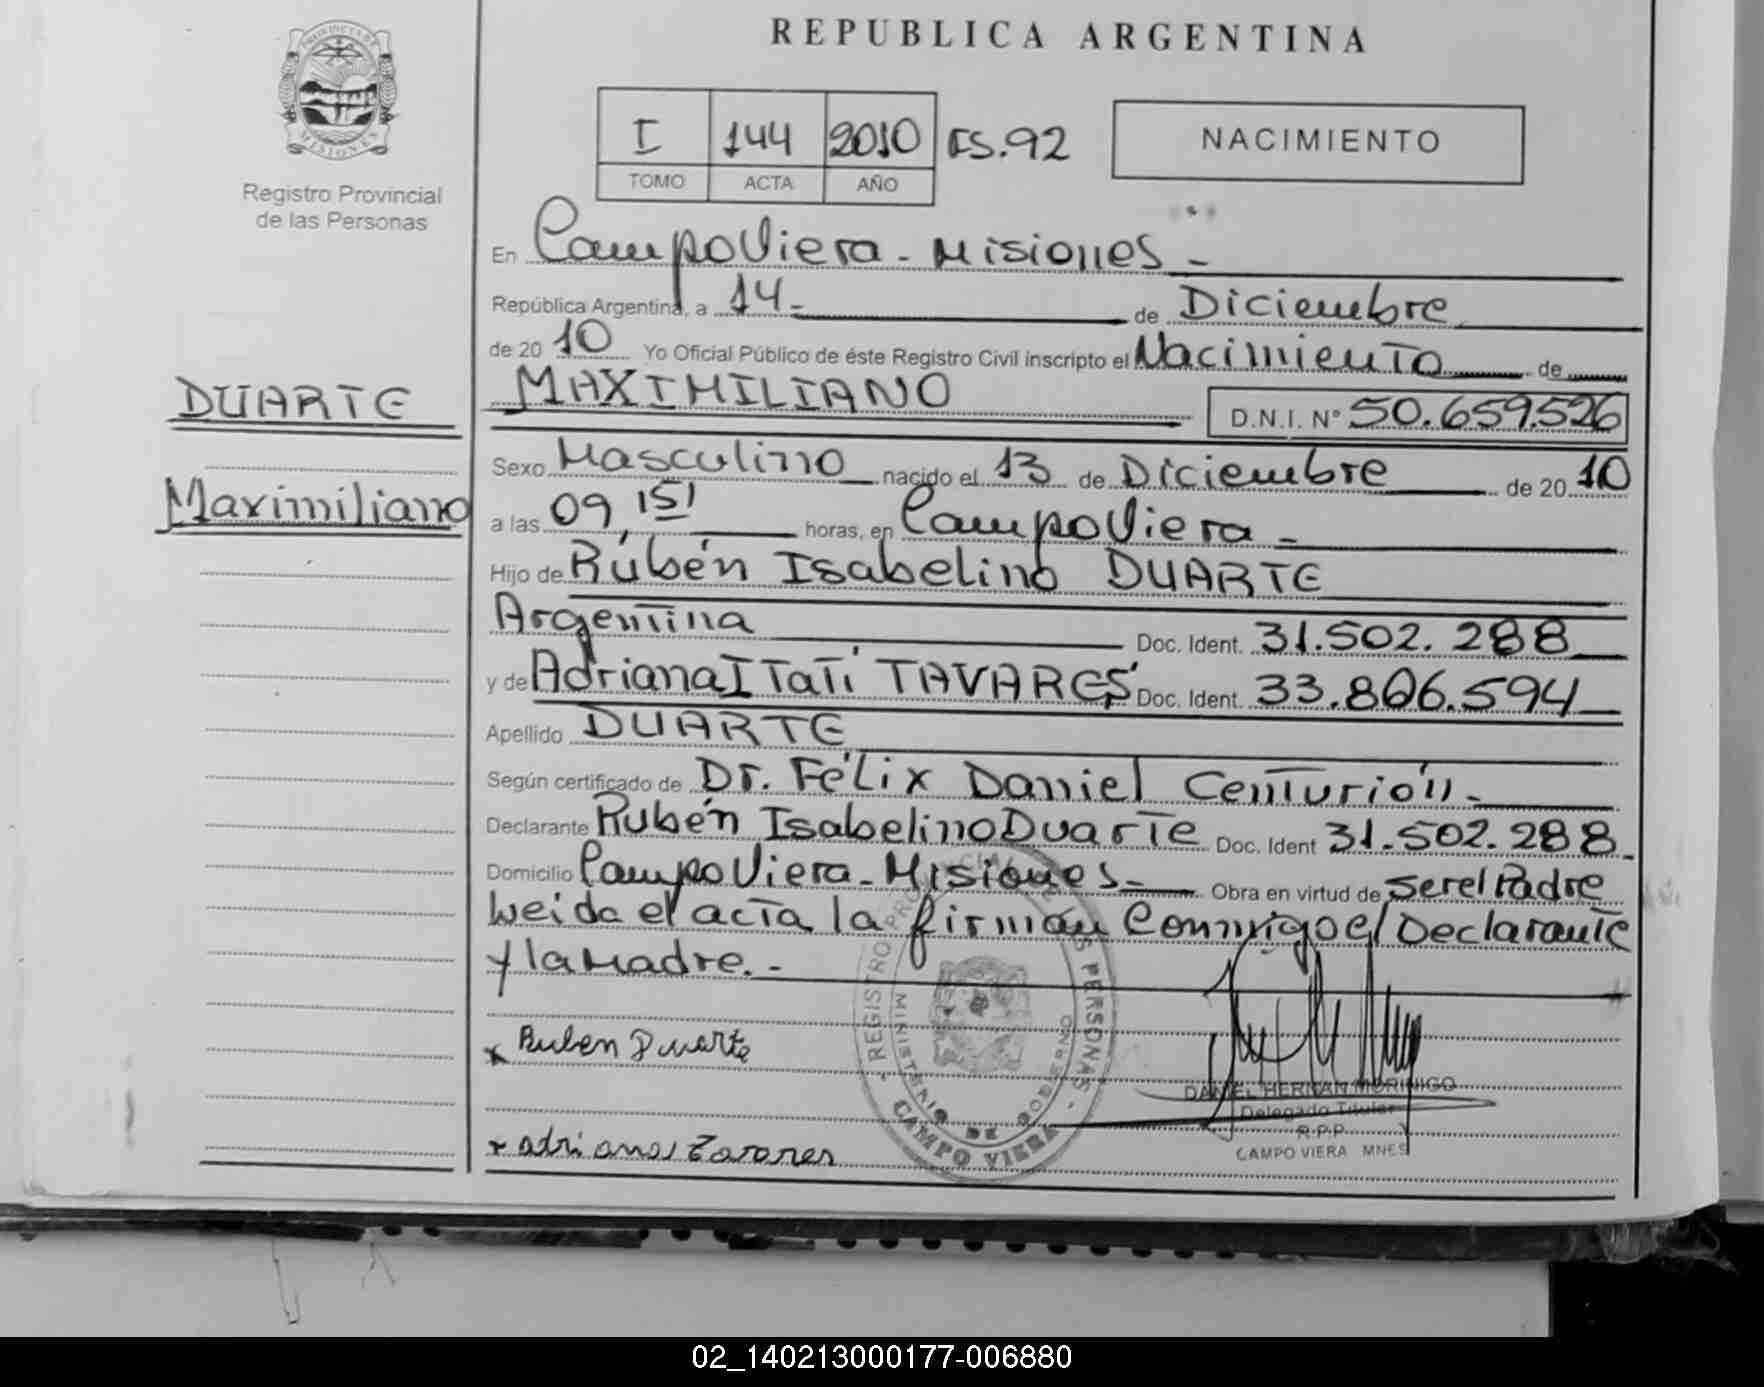 REPUBLICA ARGENTINA
PROVINCIA DE
MISIONES
Registro Provincial
de las Personas
I 144 2010 FS.92
TOMO ACTA AÑO
NACIMIENTO
En CampoViera - Misiones -
República Argentina, a 14 - de Diciembre
de 20 10 Yo Oficial Público de éste Registro Civil inscripto el Nacimiento de
DUARTE
MAXIMILIANO D.N.I. Nº 50.659.526
Sexo Masculino nacido el 13 de Diciembre de 20 10
Maximiliano
a las 09,15' horas, en CampoViera -
Hijo de Rúbén Isabelino DUARTE
Argentina Doc. Ident. 31.502.288
y de Adriana ITatí TAVARES Doc. Ident. 33.806.594
Apellido DUARTE
Según certificado de Dr. Félix Daniel Centurión -
Declarante Rubén Isabelino Duarte Doc. Ident 31.502.288
Domicilio CampoViera - Misiones - Obra en virtud de ser el Padre
Leida el acta, la firman Conmigo el Declarante
y la Madre. -
REGISTRO PROVINCIAL DE LAS PERSONAS
MINISTERIO DE GOBIERNO
CAMPO VIERA
x Ruben Duarte
DANIEL HERNAN MORINIGO
Delegado Titular
R.P.P.
CAMPO VIERA MNES
x adriana Tavares
02_140213000177-006880